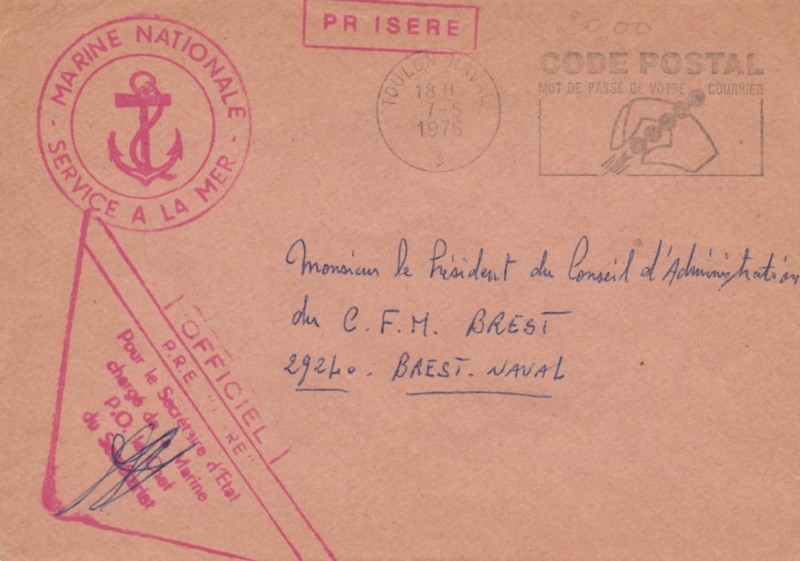 PR ISERE
20.00
MARINE NATIONALE
- SERVICE A LA MER -
TOULON NAVAL
18 H
7-5
1976
CODE POSTAL
MOT DE PASSE DE VOTRE COURRIER
Monsieur le Président du Conseil d'Administration
du C.F.M. BREST
29240. BREST. NAVAL
OFFICIEL
Pour le Secrétaire d'Etat
chargé de la Marine
P.O. Le Chef
du Secrétariat